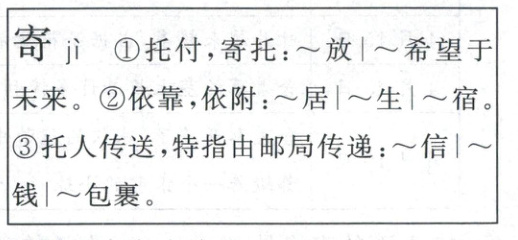 寄 jì ①托付,寄托:～放|～希望于
未来。②依靠,依附:～居|～生|～宿。
③托人传送,特指由邮局传递:～信|～
钱|～包裹。